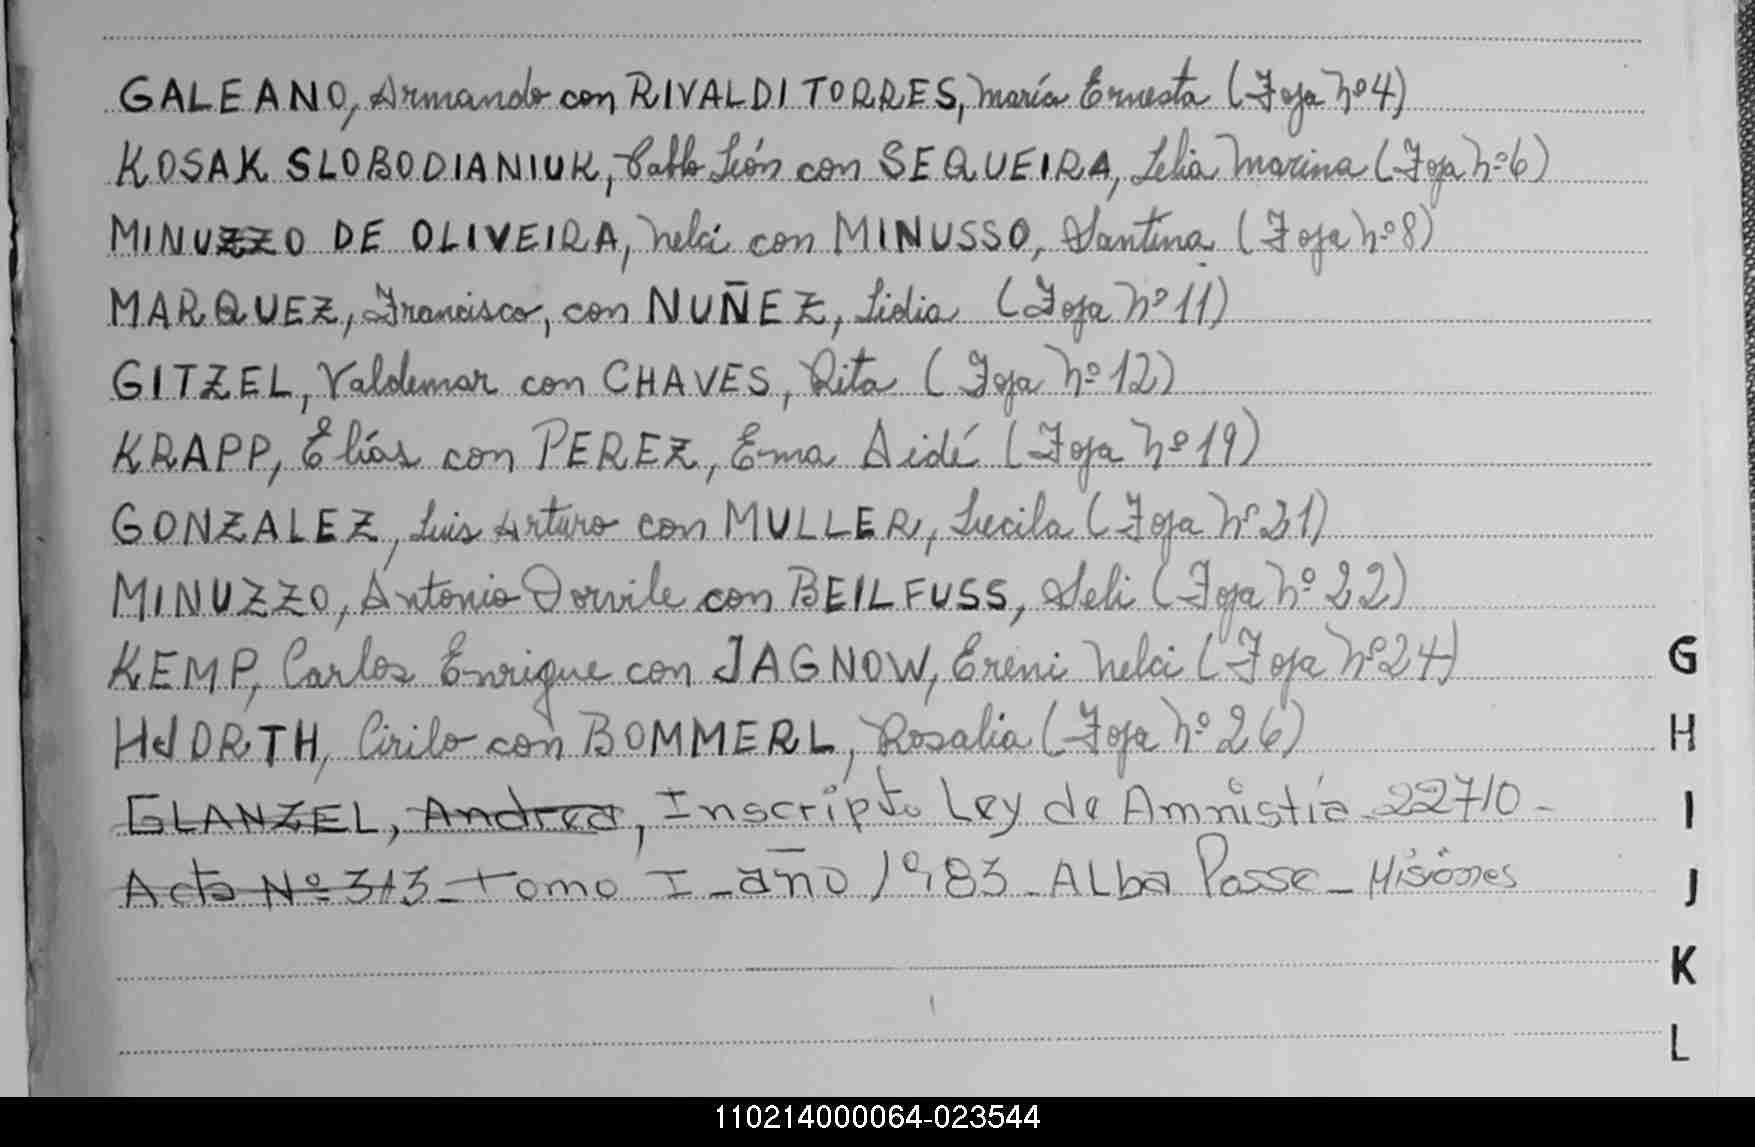 GALEANO, Armando con RIVALDI TORRES, María Ernesta (Foja Nº 4)
KOSAK SLOBODIANIUK, Pablo León con SEQUEIRA, Lelia Marina (Foja Nº 6)
MINUZZO DE OLIVEIRA, Nelci con MINUSSO, Santina (Foja Nº 8)
MARQUEZ, Francisco, con NUÑEZ, Lidia (Foja Nº 11)
GITZEL, Valdemar con CHAVES, Rita (Foja Nº 12)
KRAPP, Elías con PEREZ, Ema Aidé (Foja Nº 19)
GONZALEZ, Luis Arturo con MULLER, Lucila (Foja Nº 21)
MINUZZO, Antonio Dorvile con BEILFUSS, Seli (Foja Nº 22)
KEMP, Carlos Enrique con JAGNOW, Ereni Nelci (Foja Nº 24)
HJORTH, Cirilo con BOMMERL, Rosalia (Foja Nº 26)
GLANZEL, Andrea, Inscripto Ley de Amnistía 22710-
Acta Nº 313-tomo I-año 1983-ALba Posse-Misiones
G
H
I
J
K
L
110214000064-023544